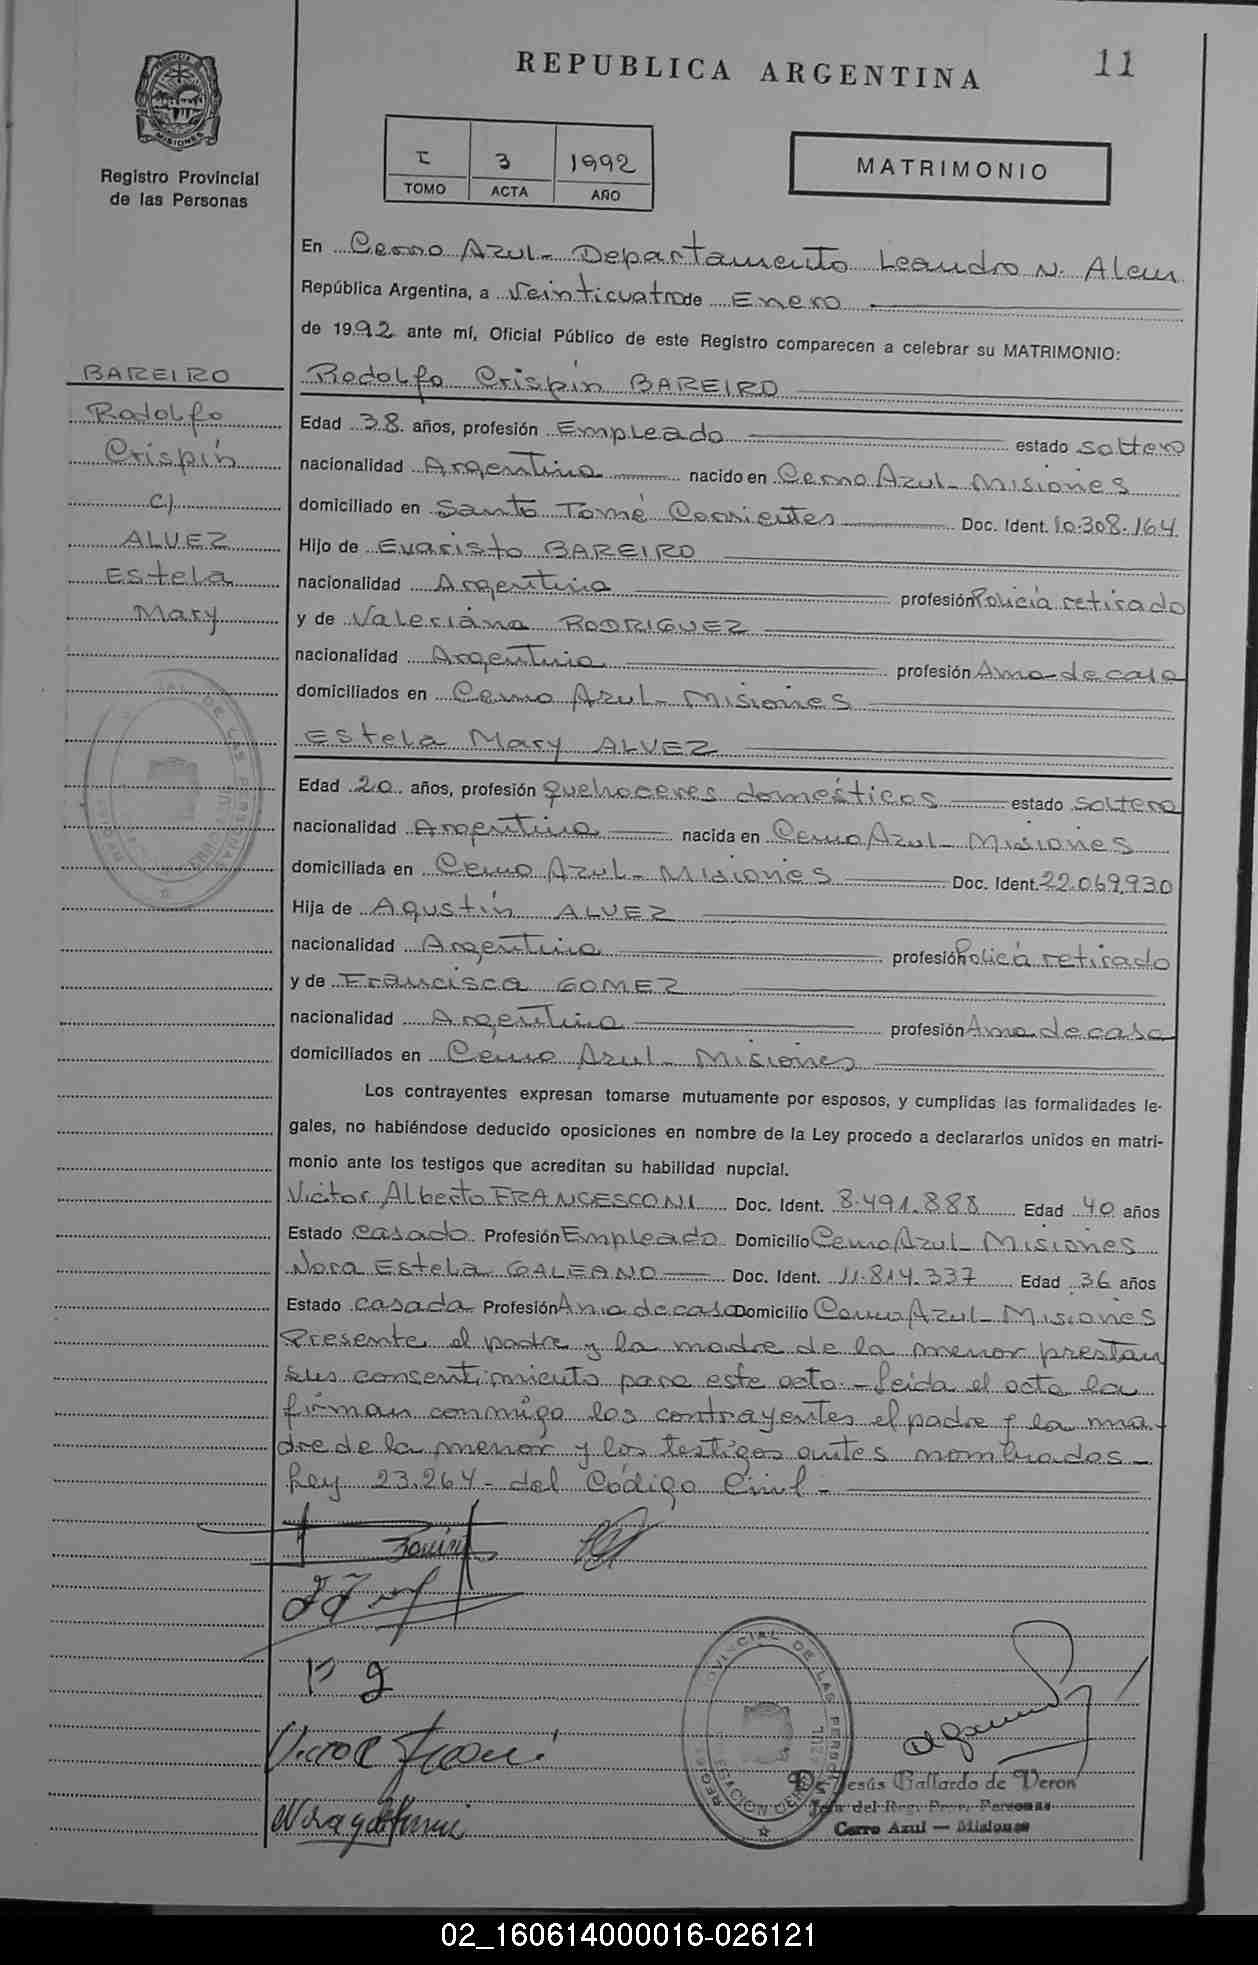 REPUBLICA ARGENTINA
11
Registro Provincial
de las Personas
I 3 1992
TOMO ACTA AÑO
MATRIMONIO
En Cerro Azul - Departamento Leandro N. Alem
República Argentina, a Veinticuatro de Enero
de 1992 ante mí, Oficial Público de este Registro comparecen a celebrar su MATRIMONIO:
BAREIRO
Rodolfo
Crispín
c/
ALVEZ
Estela
Mary
Rodolfo Crispín BAREIRO
Edad 38 años, profesión Empleado estado soltero
nacionalidad Argentina nacido en Cerro Azul - Misiones
domiciliado en Santo Tomé Corrientes Doc. Ident. 10.308.164
Hijo de Evaristo BAREIRO
nacionalidad Argentina profesión Policía retirado
y de Valeriana RODRIGUEZ
nacionalidad Argentina profesión Ama de casa
domiciliados en Cerro Azul - Misiones
Estela Mary ALVEZ
Edad 20 años, profesión quehaceres domésticos estado soltera
nacionalidad Argentina nacida en Cerro Azul - Misiones
domiciliada en Cerro Azul - Misiones Doc. Ident. 22.069.930
Hija de Agustín ALVEZ
nacionalidad Argentina profesión Policía retirado
y de Francisca GOMEZ
nacionalidad Argentina profesión Ama de casa
domiciliados en Cerro Azul - Misiones
Los contrayentes expresan tomarse mutuamente por esposos, y cumplidas las formalidades le-
gales, no habiéndose deducido oposiciones en nombre de la Ley procedo a declararlos unidos en matri-
monio ante los testigos que acreditan su habilidad nupcial.
Victor Alberto FRANCESCONI Doc. Ident. 8.491.888 Edad 40 años
Estado casado Profesión Empleado Domicilio Cerro Azul - Misiones
Nora Estela GALEANO Doc. Ident. 11.814.337 Edad 36 años
Estado casada Profesión Ama de casa Domicilio Cerro Azul - Misiones
Presente el padre y la madre de la menor prestan
sus consentimiento para este acto - Leída el acta la
firman conmigo los contrayentes el padre y la ma-
dre de la menor y los testigos antes nombrados -
Ley 23.264 - del Código Civil -
De Jesús Gallardo de Veron
Jefa del Reg. Prov. Personas
Cerro Azul — Misiones
02_160614000016-026121